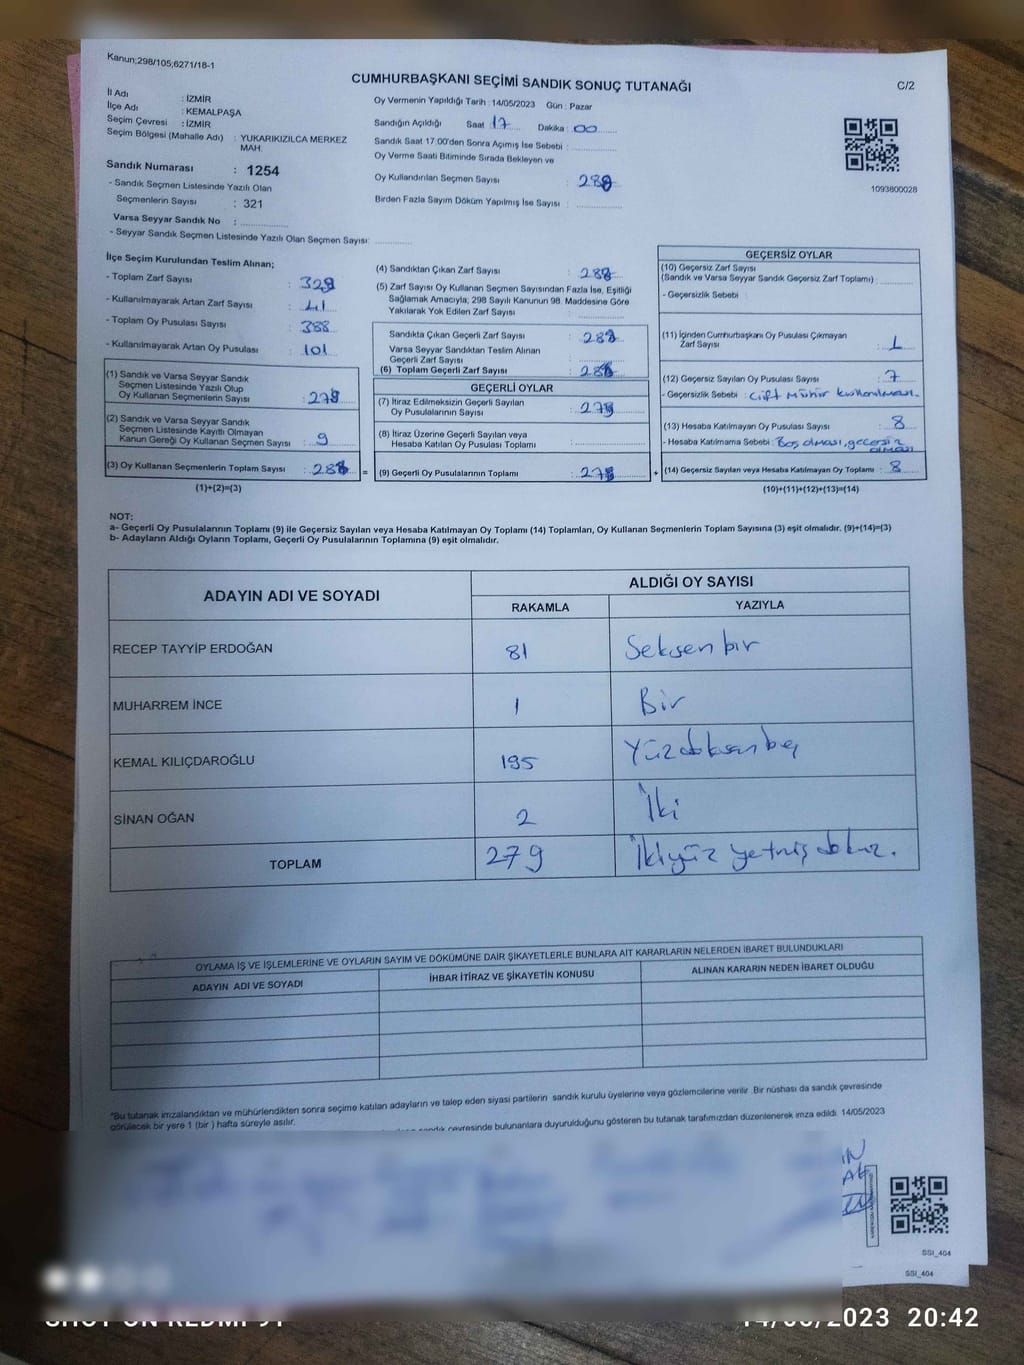 Kanun;298/105;6271/18-1
CUMHURBAŞKANI SEÇİMİ SANDIK SONUÇ TUTANAĞI
C/2
İl Adı : İZMİR
İlçe Adı : KEMALPAŞA
Seçim Çevresi : İZMİR
Seçim Bölgesi (Mahalle Adı) : YUKARIKIZILCA MERKEZ
MAH.
Sandık Numarası : 1254
- Sandık Seçmen Listesinde Yazılı Olan
Seçmenlerin Sayısı : 321
Varsa Seyyar Sandık No :
- Seyyar Sandık Seçmen Listesinde Yazılı Olan Seçmen Sayısı:
Oy Vermenin Yapıldığı Tarih : 14/05/2023 Gün : Pazar
Sandığın Açıldığı Saat 17 Dakika : 00
Sandık Saat 17:00'den Sonra Açımış İse Sebebi :
Oy Verme Saati Bitiminde Sırada Bekleyen ve
Oy Kullandırılan Seçmen Sayısı :
Birden Fazla Sayım Döküm Yapılmış İse Sayısı :
1093800028
İlçe Seçim Kurulundan Teslim Alınan;
- Toplam Zarf Sayısı : 329
- Kullanılmayarak Artan Zarf Sayısı : 41
- Toplam Oy Pusulası Sayısı : 388
- Kullanılmayarak Artan Oy Pusulası : 101
(1) Sandık ve Varsa Seyyar Sandık
Seçmen Listesinde Yazılı Olup
Oy Kullanan Seçmenlerin Sayısı :
(2) Sandık ve Varsa Seyyar Sandık
Seçmen Listesinde Kayıtlı Olmayan
Kanun Gereği Oy Kullanan Seçmen Sayısı : 9
(3) Oy Kullanan Seçmenlerin Toplam Sayısı :
(1)+(2)=(3)
(4) Sandıktan Çıkan Zarf Sayısı :
(5) Zarf Sayısı Oy Kullanan Seçmen Sayısından Fazla İse, Eşitliği
Sağlamak Amacıyla; 298 Sayılı Kanunun 98. Maddesine Göre
Yakılarak Yok Edilen Zarf Sayısı :
Sandıkta Çıkan Geçerli Zarf Sayısı :
Varsa Seyyar Sandıktan Teslim Alınan
Geçerli Zarf Sayısı :
(6) Toplam Geçerli Zarf Sayısı :
GEÇERLİ OYLAR
(7) İtiraz Edilmeksizin Geçerli Sayılan
Oy Pusulalarının Sayısı : 279
(8) İtiraz Üzerine Geçerli Sayılan veya
Hesaba Katılan Oy Pusulası Toplamı :
= (9) Geçerli Oy Pusulalarının Toplamı :
GEÇERSİZ OYLAR
(10) Geçersiz Zarf Sayısı
(Sandık ve Varsa Seyyar Sandık Geçersiz Zarf Toplamı) :
- Geçersizlik Sebebi :
(11) İçinden Cumhurbaşkanı Oy Pusulası Çıkmayan
Zarf Sayısı : 1
(12) Geçersiz Sayılan Oy Pusulası Sayısı : 7
- Geçersizlik Sebebi : Çift mühür kullanılması.
(13) Hesaba Katılmayan Oy Pusulası Sayısı : 8
- Hesaba Katılmama Sebebi : Boş olması, geçersiz
olması
+ (14) Geçersiz Sayılan veya Hesaba Katılmayan Oy Toplamı : 8
(10)+(11)+(12)+(13)=(14)
NOT:
a- Geçerli Oy Pusulalarının Toplamı (9) ile Geçersiz Sayılan veya Hesaba Katılmayan Oy Toplamı (14) Toplamları, Oy Kullanan Seçmenlerin Toplam Sayısına (3) eşit olmalıdır. (9)+(14)=(3)
b- Adayların Aldığı Oyların Toplamı, Geçerli Oy Pusulalarının Toplamına (9) eşit olmalıdır.
ADAYIN ADI VE SOYADI
ALDIĞI OY SAYISI
RAKAMLA YAZIYLA
RECEP TAYYİP ERDOĞAN 81 Seksen bir
MUHARREM İNCE 1 Bir
KEMAL KILIÇDAROĞLU 195 Yüzdoksanbeş
SİNAN OĞAN 2 İki
TOPLAM 279 İkiyüz yetmiş dokuz.
OYLAMA İŞ VE İŞLEMLERİNE VE OYLARIN SAYIM VE DÖKÜMÜNE DAİR ŞİKAYETLERLE BUNLARA AİT KARARLARIN NELERDEN İBARET BULUNDUKLARI
ADAYIN ADI VE SOYADI İHBAR İTİRAZ VE ŞİKAYETİN KONUSU ALINAN KARARIN NEDEN İBARET OLDUĞU
"Bu tutanak imzalandıktan ve mühürlendikten sonra seçime katılan adayların ve talep eden siyasi partilerin sandık kurulu üyelerine veya gözlemcilerine verilir .Bir nüshası da sandık çevresinde
görülecek bir yere 1 (bir ) hafta süreyle asılır.
sandık çevresinde bulunanlara duyurulduğunu gösteren bu tutanak tarafımızdan düzenlenerek imza edildi. 14/05/2023
SSI_404
SSI_404
SHOT ON REDMI 9T
14/05/2023 20:42